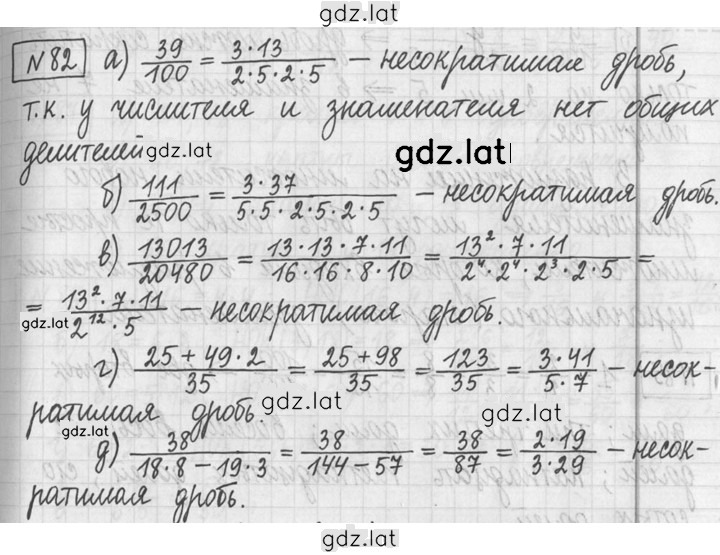 gdz.lat
№82 а) 39/100 = 3·13/2·5·2·5 – несократимая дробь,
т.к. у числителя и знаменателя нет общих
делителей gdz.lat gdz.lat
б) 111/2500 = 3·37/5·5·2·5·2·5 – несократимая дробь.
в) 13013/20480 = 13·13·7·11/16·16·8·10 = 13²·7·11/2⁴·2⁴·2³·2·5 =
= 13²·7·11/2¹²·5 – несократимая дробь.
gdz.lat
г) 25+49·2/35 = 25+98/35 = 123/35 = 3·41/5·7 – несок-
ратимая дробь. gdz.lat gdz.lat
gdz.lat
д) 38/18·8–19·3 = 38/144–57 = 38/87 = 2·19/3·29 – несок-
ратимая дробь.
gdz.lat